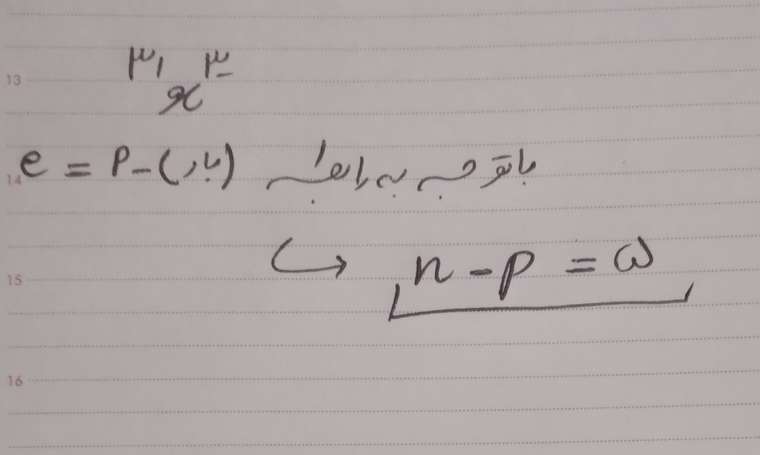 ۳۱ x ۳-
با توجه به رابطه e = p - (بار)
n - p = ۵
13
14
15
16